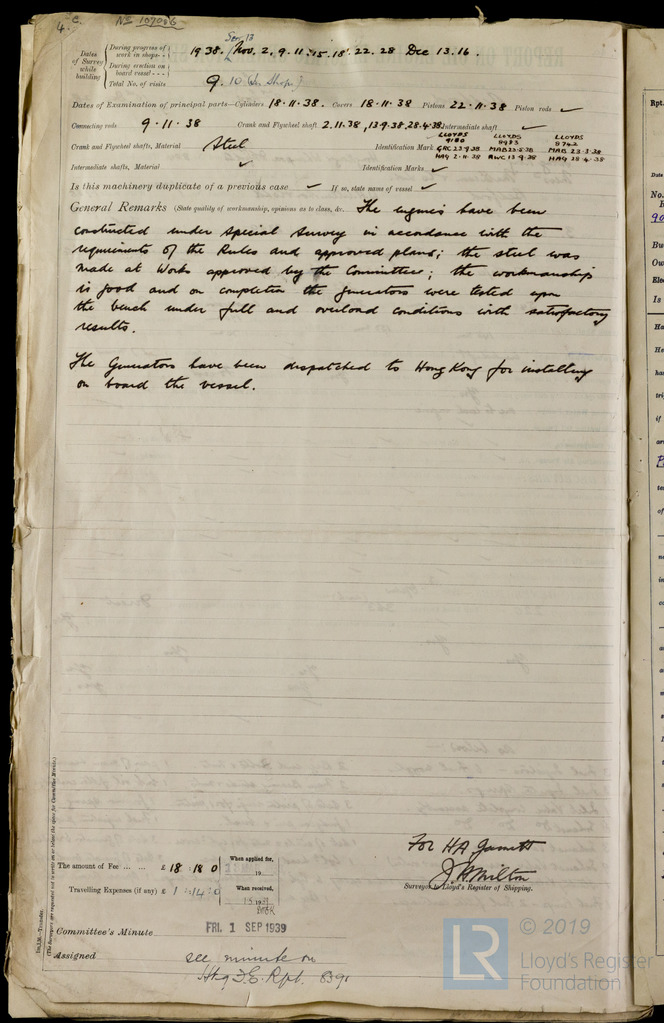 4. C. No 107086
Sep. 13
Dates of Survey while building
During progress of work in shops - - 1938. Nov. 2. 9. 11. 15. 18. 22. 28 Dec 13. 16.
During erection on board vessel - - -
Total No. of visits 9. 10 (In Shop.)
Dates of Examination of principal parts—Cylinders 18·11·38. Covers 18·11·38 Pistons 22·11·38 Piston rods ✓
Connecting rods 9·11·38 Crank and Flywheel shaft 2.11.38, 13.9.38, 28.4.38 Intermediate shaft ✓
Crank and Flywheel shafts, Material Steel Identification Mark LLOYDS 9180 GRC 23·9·38 HAY 2·11·38 LLOYDS 8983 MAB 23·5·38 RWC 13·9·38 LLOYDS 8742 MAB 23·3·38 HAY 28·4·38
Intermediate shafts, Material ✓ Identification Marks ✓
Is this machinery duplicate of a previous case ✓ If so, state name of vessel ✓
General Remarks (State quality of workmanship, opinions as to class, &c. The engines have been
constructed under special survey in accordance with the
requirements of the Rules and approved plans; the steel was
made at Works approved by the Committee; the workmanship
is good and on completion the generators were tested upon
the bench under full and overload conditions with satisfactory
results.
The Generators have been dispatched to Hong Kong for installing
on board the vessel.
The amount of Fee ... ... £ 18 : 18 : 0 When applied for,
19
Travelling Expenses (if any) £ 1 : 14 : 0 When received,
For HA Garnett
J H Milton
Surveyor to Lloyd's Register of Shipping.
Committee's Minute FRI. 1 SEP 1939
Assigned see minute on
Hkg F.E. Rpt. 8391
(The Surveyors are requested not to write on or below the space for Committee's Minute.)
© 2019
LR Lloyd's Register
Foundation
Rpt.
Date
No.
90
Bu
Ow
Elec
Is